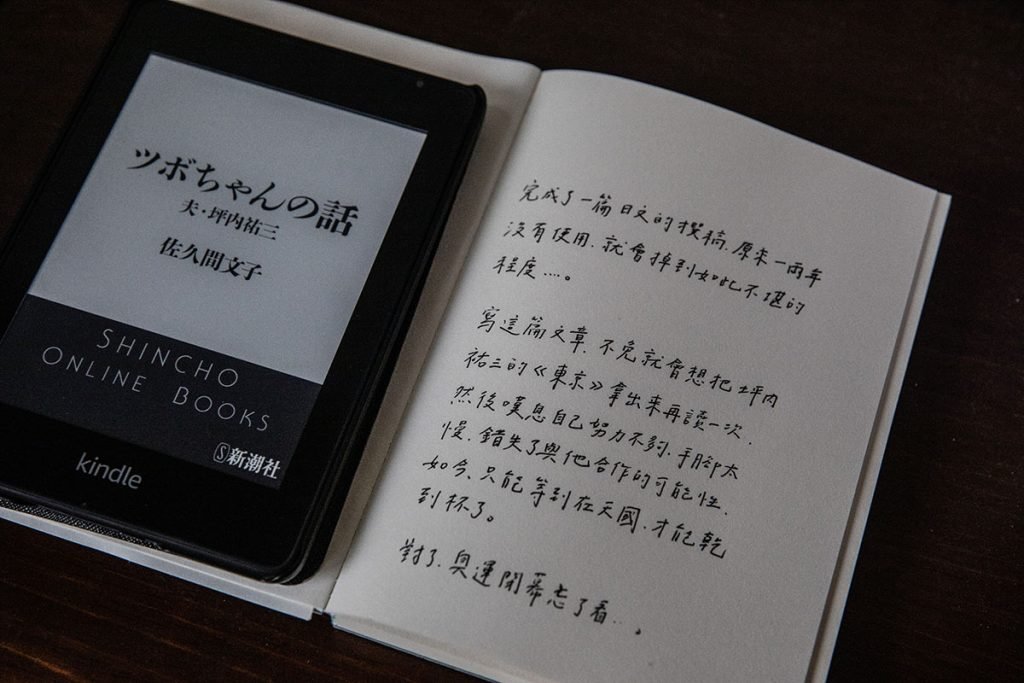 ツボちゃんの話
夫・坪内祐三
佐久間文子
SHINCHO
ONLINE BOOKS
新潮社
kindle
完成了一篇日文的撰稿,原來一兩年
沒有使用,就會掉到如此不堪的
程度…。
寫這篇文章,不免就會想把坪內
祐三的《東京》拿出來再讀一次,
然後嘆息自己努力不夠,手腳太
慢,錯失了與他合作的可能性,
如今,只能等到在天國,才能乾
到杯了。
對了,奧運閉幕忘了看…。